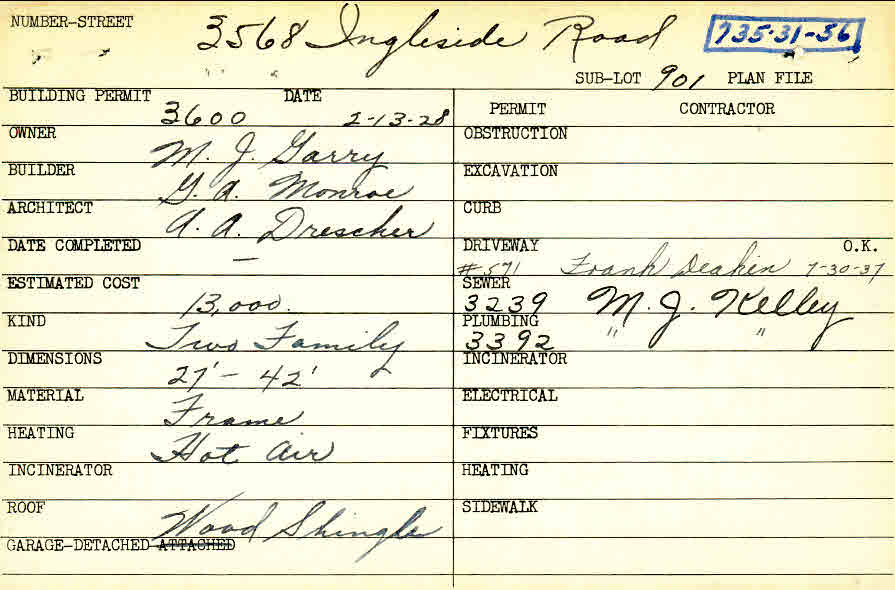 NUMBER-STREET 3568 Ingleside Road 735-31-56
SUB-LOT 901 PLAN FILE
BUILDING PERMIT 3600 DATE 2-13-28
OWNER M. J. Garry
BUILDER G. A. Monroe
ARCHITECT A. A. Drescher
DATE COMPLETED —
ESTIMATED COST 13,000.
KIND Two Family
DIMENSIONS 27' - 42'
MATERIAL Frame
HEATING Hot Air
INCINERATOR
ROOF Wood Shingle
GARAGE-DETACHED ATTACHED
PERMIT CONTRACTOR
OBSTRUCTION
EXCAVATION
CURB
DRIVEWAY O.K.
#571 Frank Deakin 7-30-37
SEWER
3239 M. J. Kelley
PLUMBING
3392 " "
INCINERATOR
ELECTRICAL
FIXTURES
HEATING
SIDEWALK